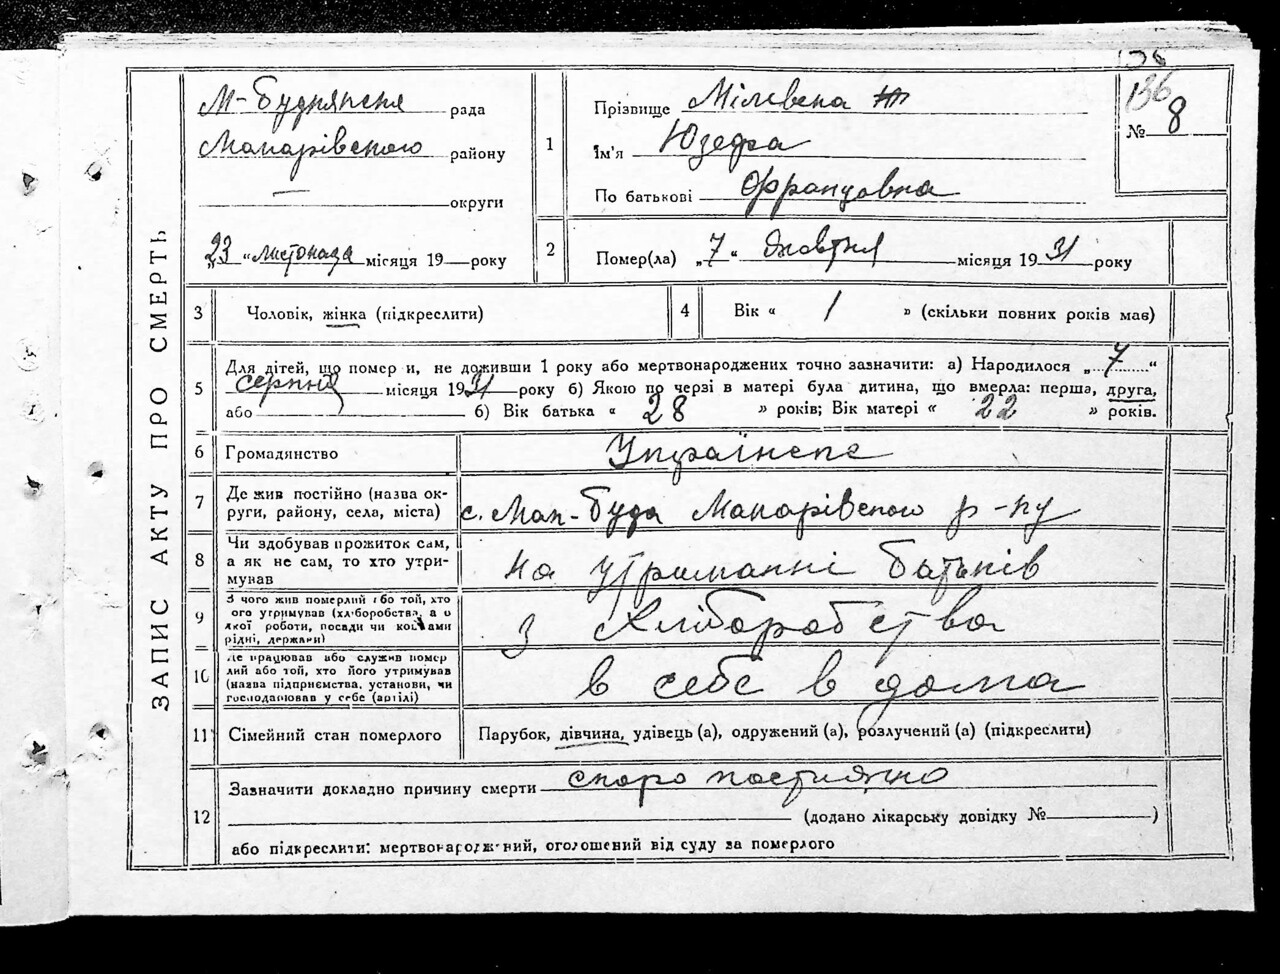 138
136
№ 8
ЗАПИС АКТУ ПРО СМЕРТЬ
М-Буднянська рада
Макарівського району
— округи
„23 “ листопада місяця 19 року
1
Прізвище Мілевска
Ім'я Юзефа
По батькові Францовна
2 Помер(ла) „7“ жовтня місяця 1931 року
3 Чоловік, жінка (підкреслити)
4 Вік “ 1 ” (скільки повних років мав)
5 Для дітей, що помер и, не доживши 1 року або мертвонароджених точно зазначити: а) Народилося „ 7 “
серпня місяця 1931 року б) Якою по черзі в матері була дитина, що вмерла: перша, друга,
або б) Вік батька “ 28 ” років; Вік матері “ 22 ” років.
6 Громадянство Українське
7 Де жив постійно (назва ок-
руги, району, села, міста) с. Мак-Буда Макарівського р-ну
8 Чи здобував прожиток сам,
а як не сам, то хто утри-
мував на утриманні батьків
9 З чого жив померлий або той, хто
ого утримував (хліборобства, а о
якої роботи, посади чи коштами
рідні, держави) з Хліборобства
10 Де працював або служив помер
лий або той, хто його утримував
(назва підприємства, установи, чи
господарював у себе (артілі) в себе в дома
11 Сімейний стан померлого Парубок, дівчина, удівець (а), одружений (а), розлучений (а) (підкреслити)
12 Зазначити докладно причину смерти скоро постижно
(додано лікарську довідку № )
або підкреслити: мертвонароджений, оголошений від суду за померлого